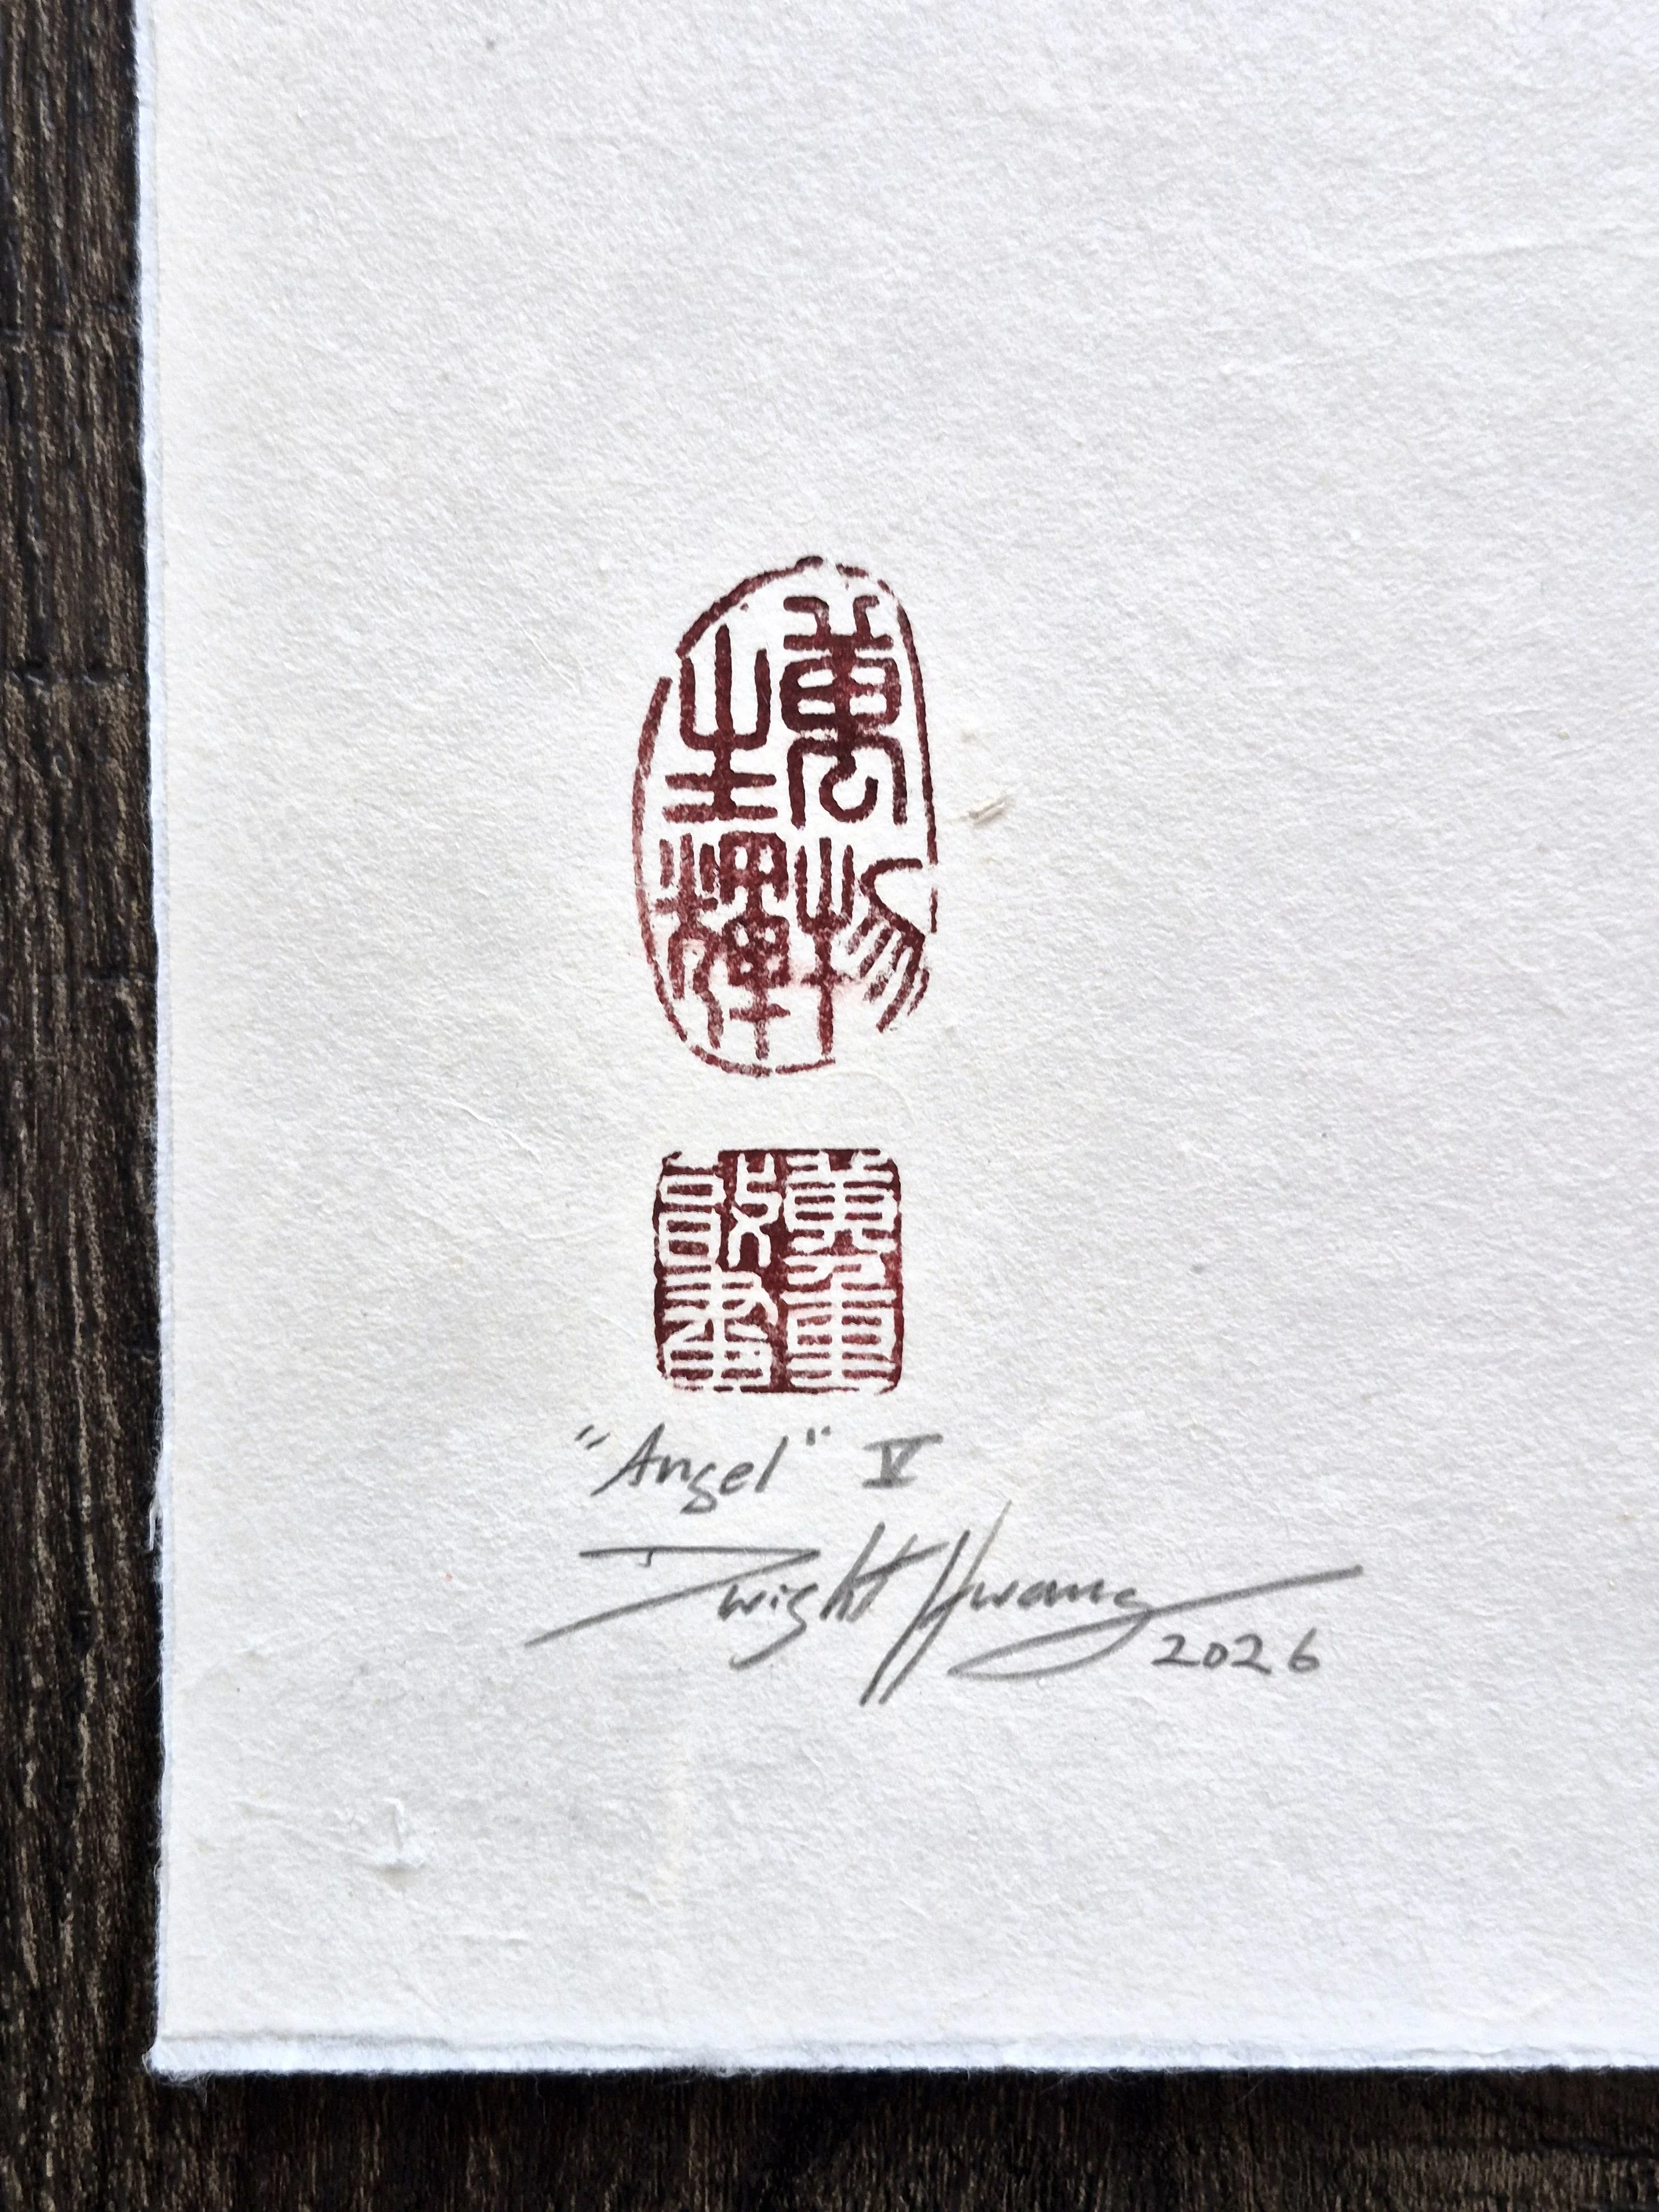 萬物
生輝
"Angel" V
Dwight Hwang
2026